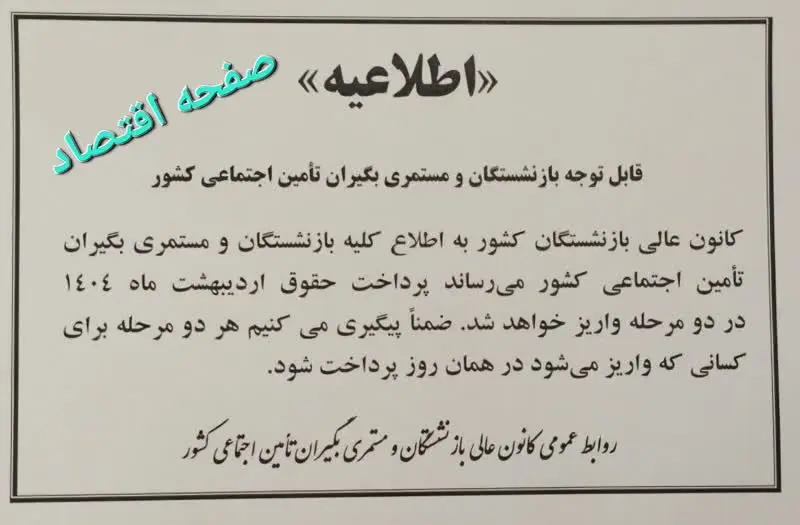 «اطلاعیه»
صفحه اقتصاد
قابل توجه بازنشستگان و مستمری بگیران تأمین اجتماعی کشور
کانون عالی بازنشستگان کشور به اطلاع کلیه بازنشستگان و مستمری بگیران
تأمین اجتماعی کشور می‌رساند پرداخت حقوق اردیبهشت ماه ۱۴۰۴
در دو مرحله واریز خواهد شد. ضمناً پیگیری می کنیم هر دو مرحله برای
کسانی که واریز می‌شود در همان روز پرداخت شود.
روابط عمومی کانون عالی بازنشستگان و مستمری بگیران تأمین اجتماعی کشور